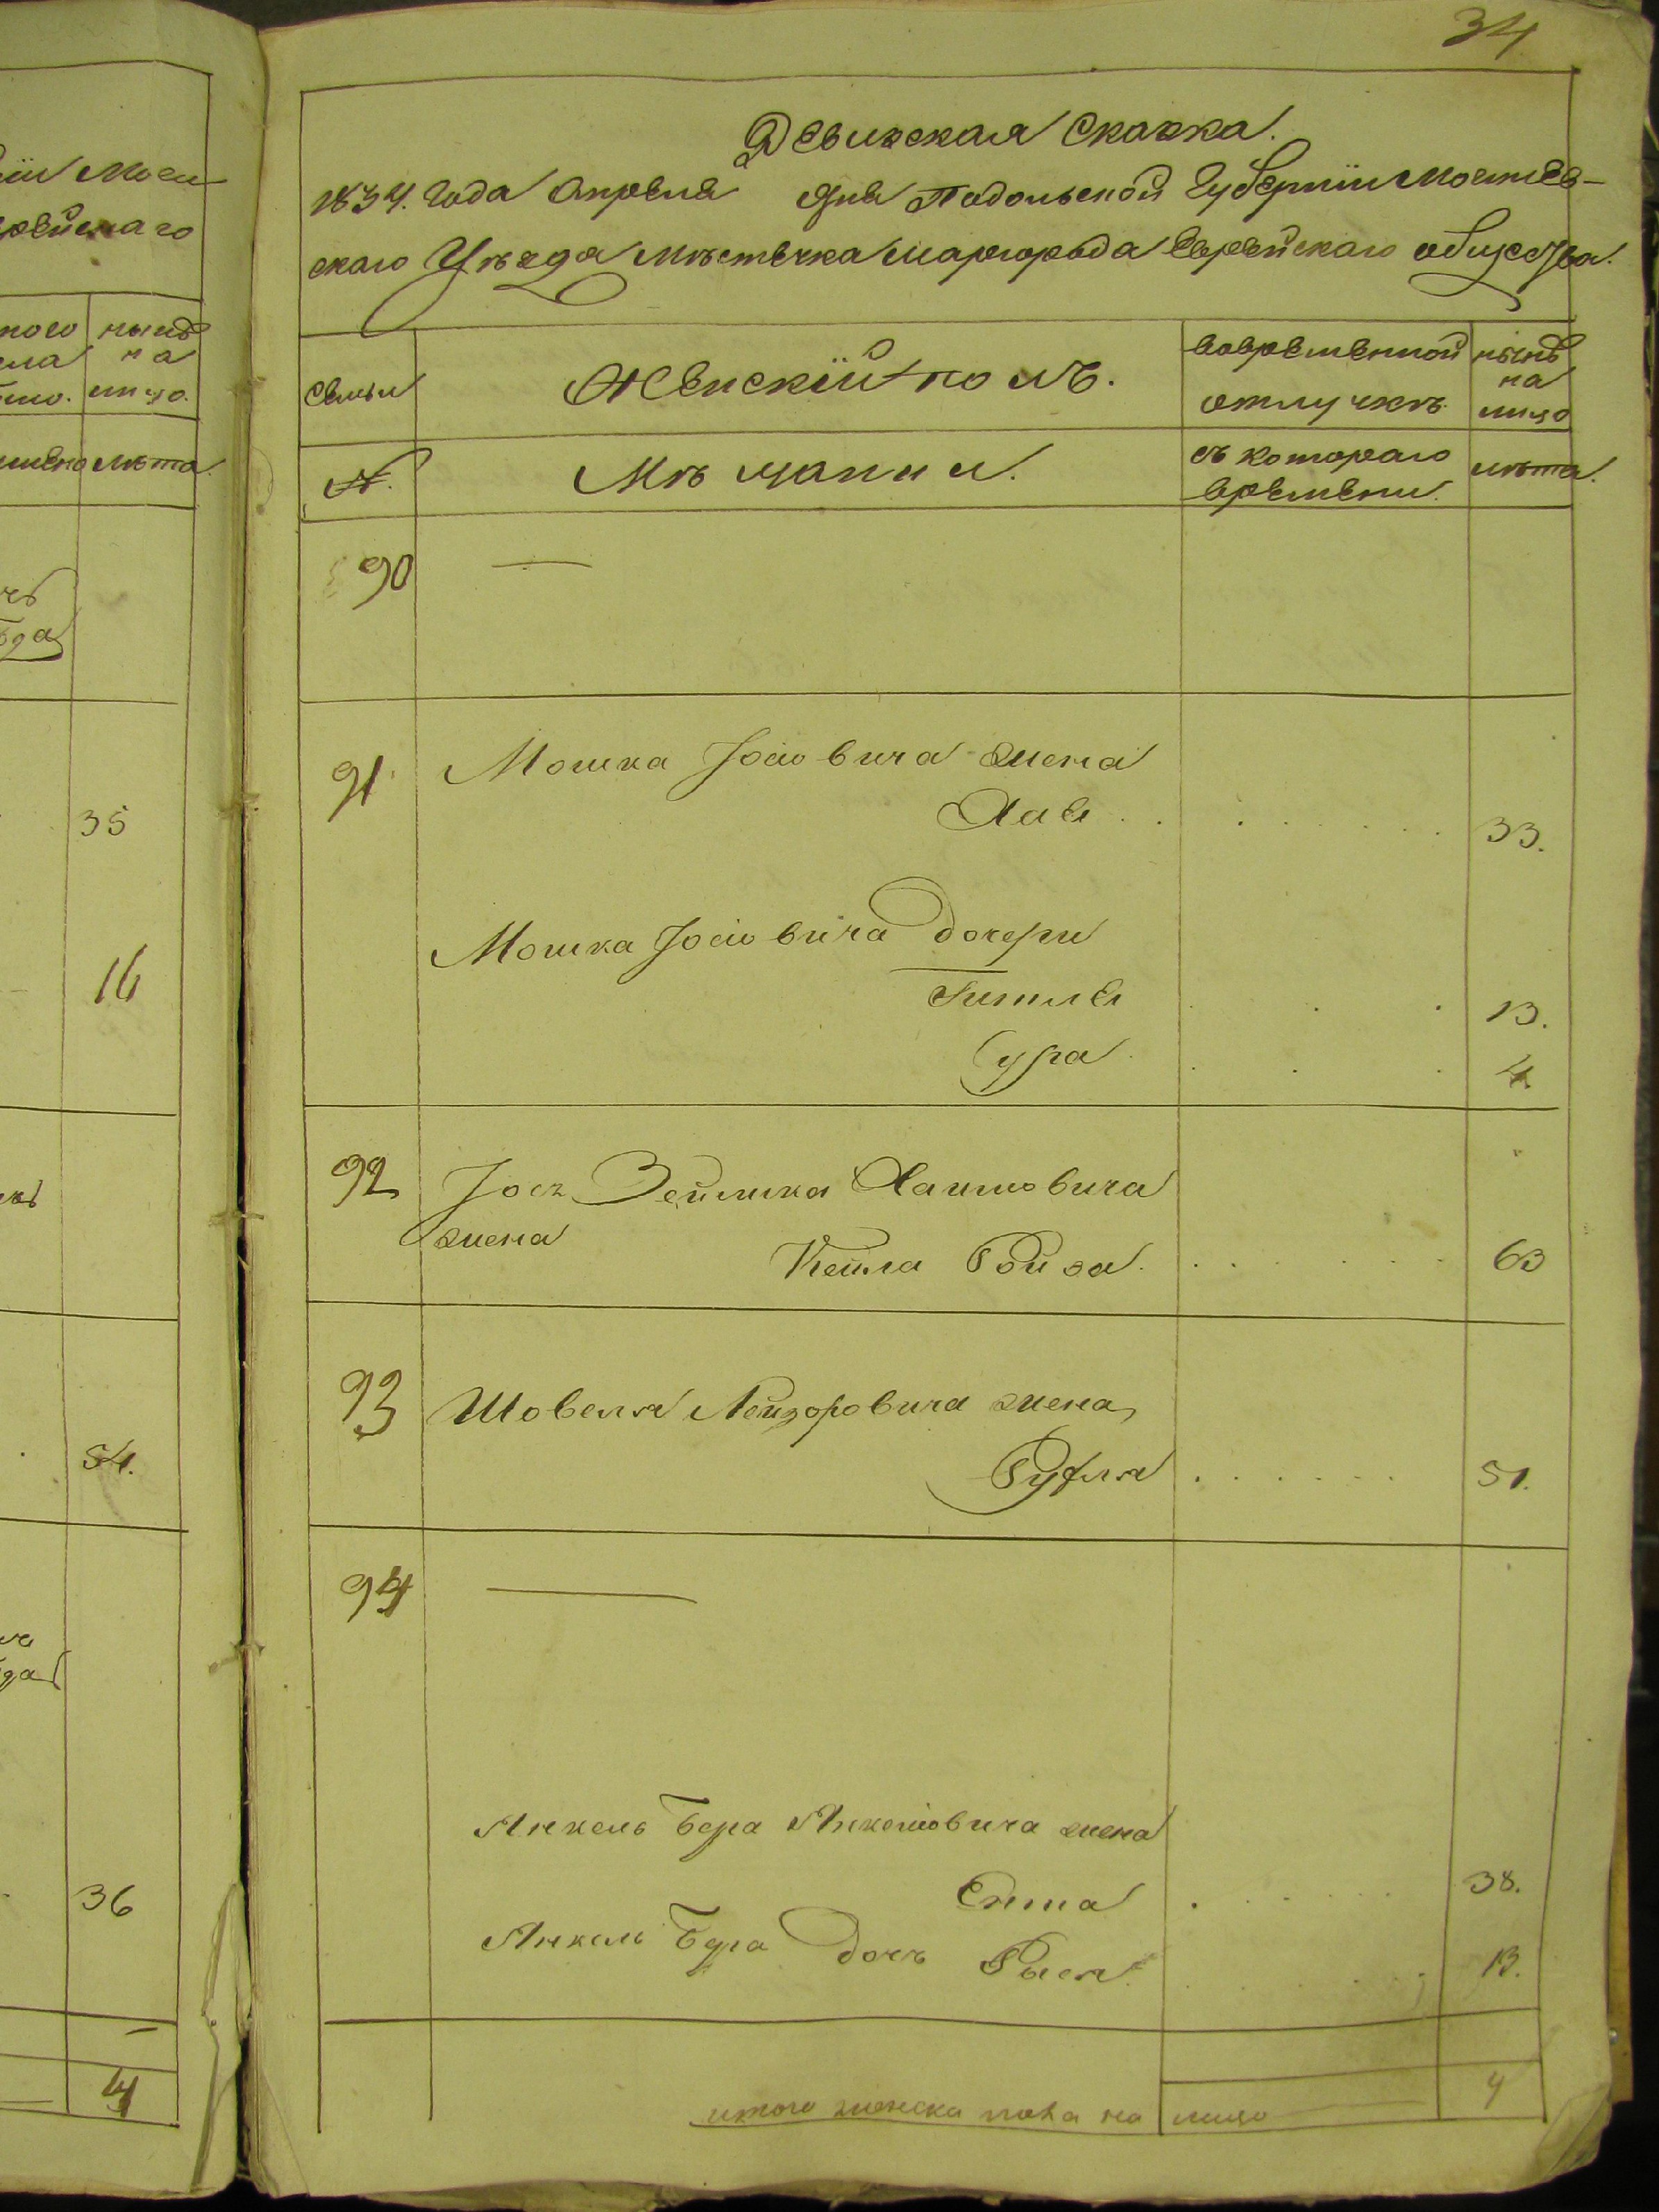 34
Ревизская Сказка.
1834. Года Апреля Дня Подольской Губернии Могилев-
скаго Уѣзда мѣстечка Шаргорода Еврейскаго общества.
семьи
Женскій полъ.
вовременной
отлучкѣ.
нынѣ
на
лицо
№.
Мѣщании.
съ котораго
времени.
лѣта.
90 —
91. Мошка Іосіовича жена
Хаве . . . . . . 33.
Мошка Іосіовича дочери
Гитле . . . 13.
Сура . . . 4.
92 Іось Зейлика Хаимовича
жена
Кейла Ройза . . . . . . 63
93 Шовеля Лейзоровича жена,
Рухля . . . . . . 51.
94 —
Янкель Бера Янкеліовича жена
Ента . . . . . 38.
Янкель Бера дочь Рыся . . . . 13.
итого женска пола на лицо 4
35
16
54.
36
—
4
нынѣ
на
лицо.
лѣта.